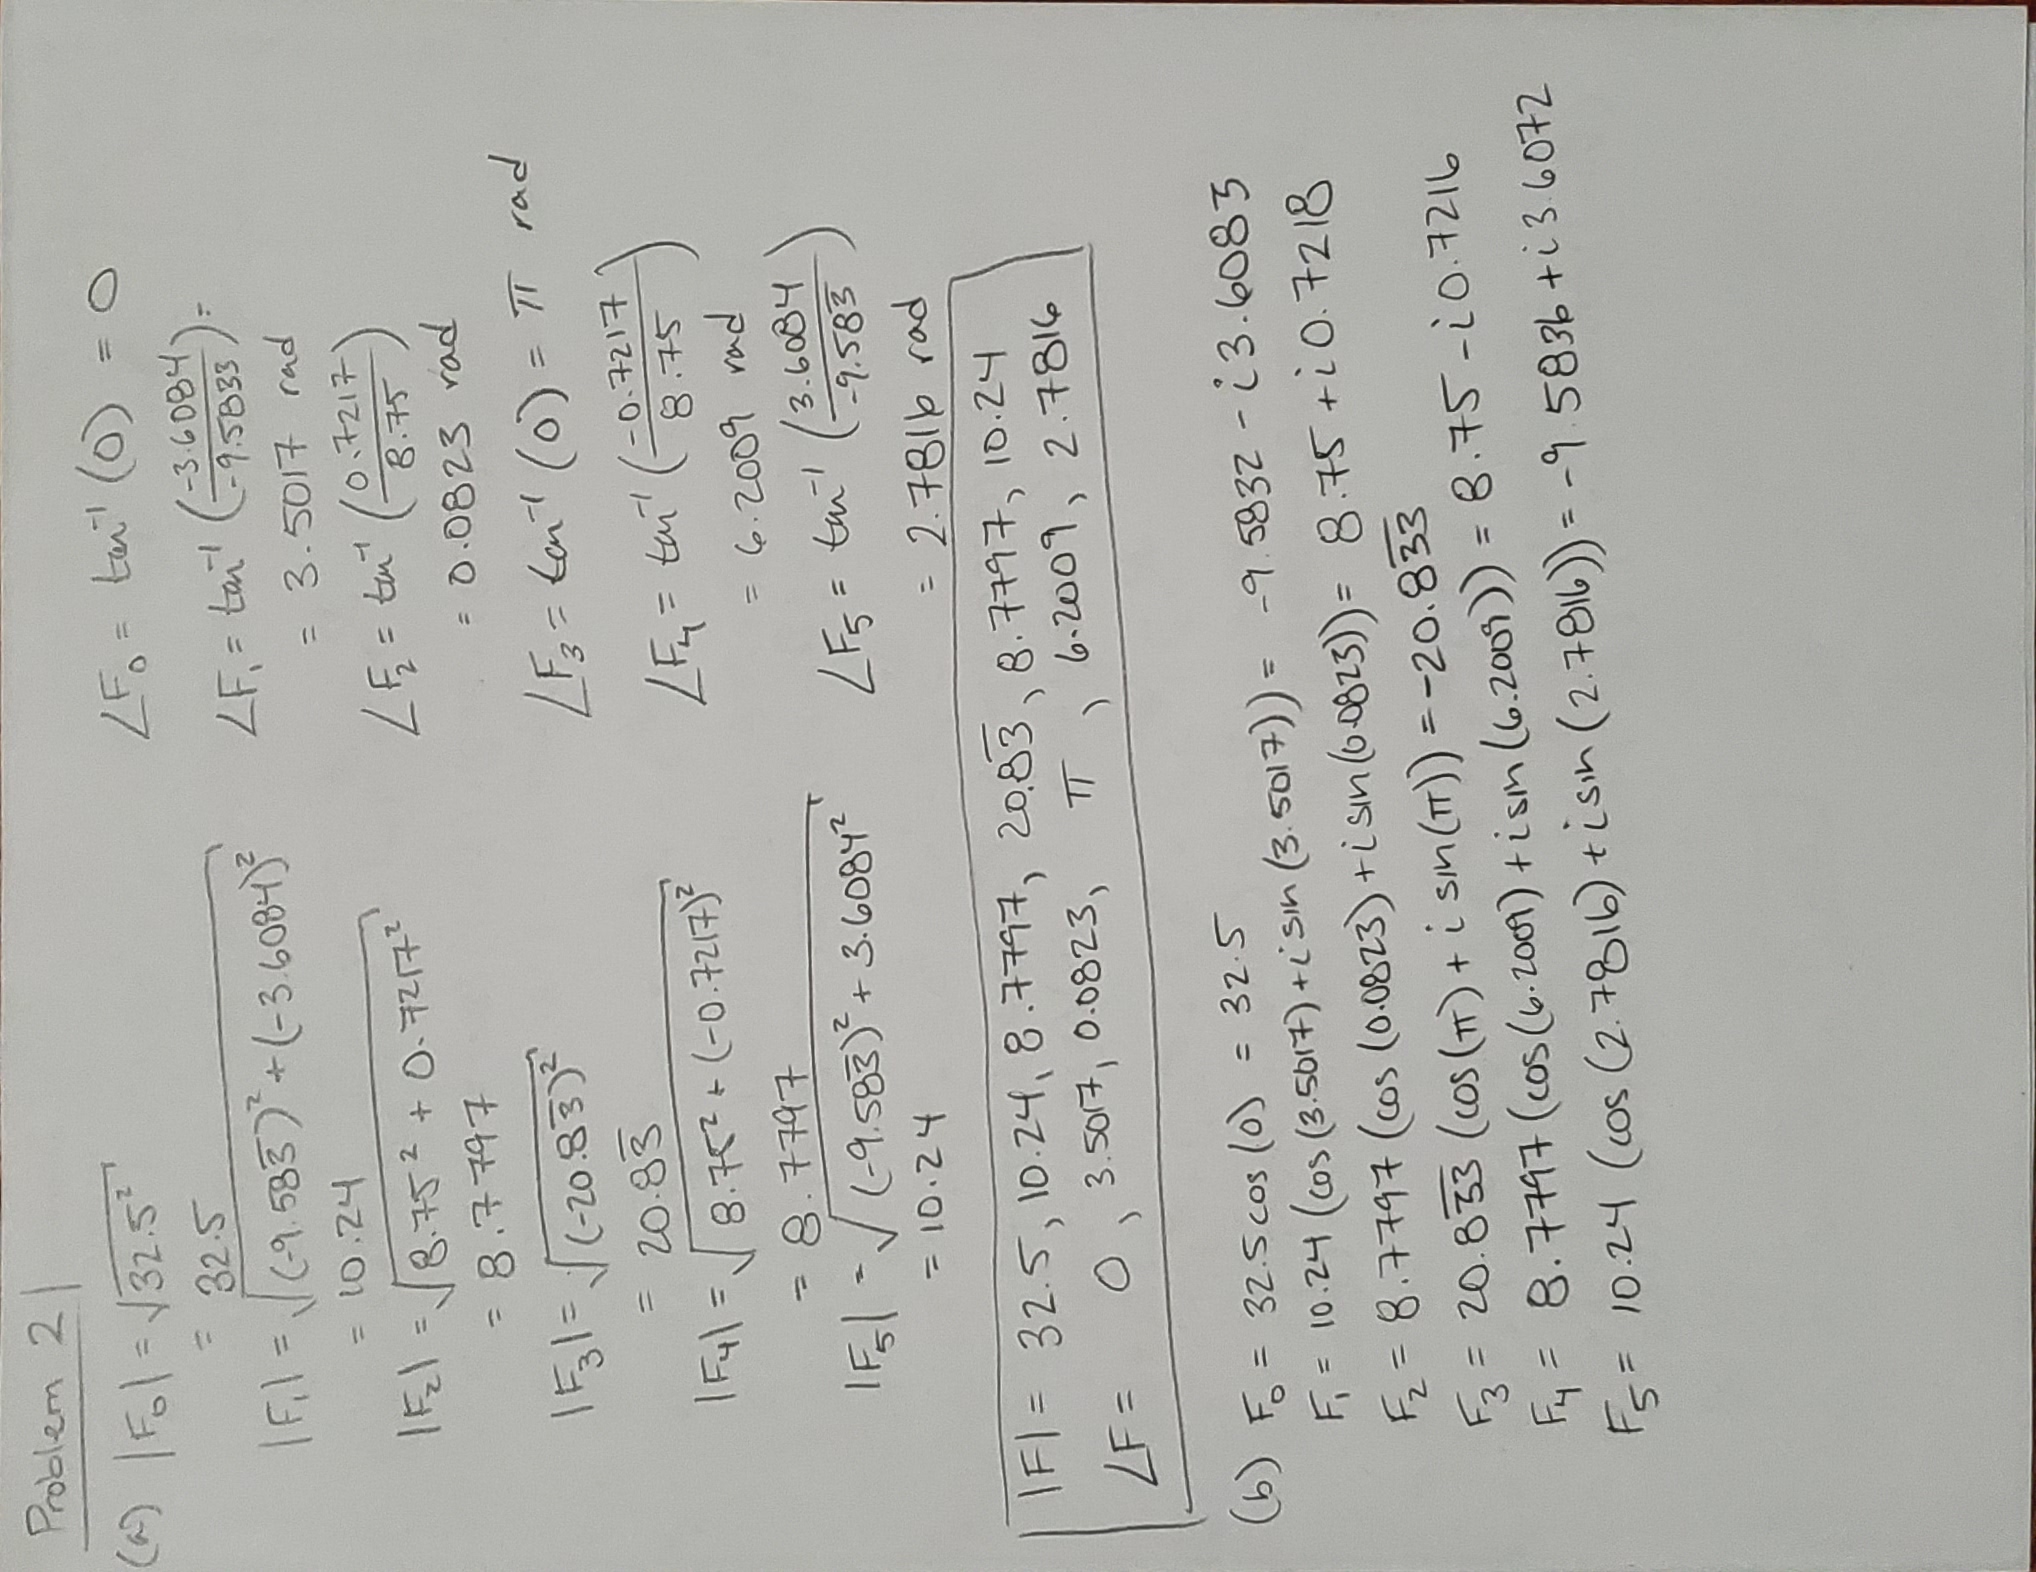 Problem 2
(a) |F₀| = √32.5²
= 32.5
|F₁| = √(-9.583̅)² + (-3.6084)²
= 10.24
|F₂| = √8.75² + 0.7217²
= 8.7797
|F₃| = √(-20.83̅)²
= 20.83̅
|F₄| = √8.75² + (-0.7217)²
= 8.7797
|F₅| = √(-9.583̅)² + 3.6084²
= 10.24
∠F₀ = tan⁻¹ (0) = 0
∠F₁ = tan⁻¹ (-3.6084/-9.5833) =
= 3.5017 rad
∠F₂ = tan⁻¹ (0.7217/8.75)
= 0.0823 rad
∠F₃ = tan⁻¹ (0) = π rad
∠F₄ = tan⁻¹ (-0.7217/8.75)
= 6.2009 rad
∠F₅ = tan⁻¹ (3.6084/-9.583̅)
= 2.7816 rad
|F| = 32.5, 10.24, 8.7797, 20.83̅, 8.7797, 10.24
∠F = 0, 3.5017, 0.0823, π, 6.2009, 2.7816
(b) F₀ = 32.5 cos (0) = 32.5
F₁ = 10.24 (cos (3.5017) + i sin (3.5017)) = -9.5832 - i3.6083
F₂ = 8.7797 (cos (0.0823) + i sin (0.0823)) = 8.75 + i0.7218
F₃ = 20.83̅3̅ (cos (π) + i sin (π)) = -20.83̅3̅
F₄ = 8.7797 (cos (6.2009) + i sin (6.2009)) = 8.75 - i0.7216
F₅ = 10.24 (cos (2.7816) + i sin (2.7816)) = -9.5836 + i3.6072